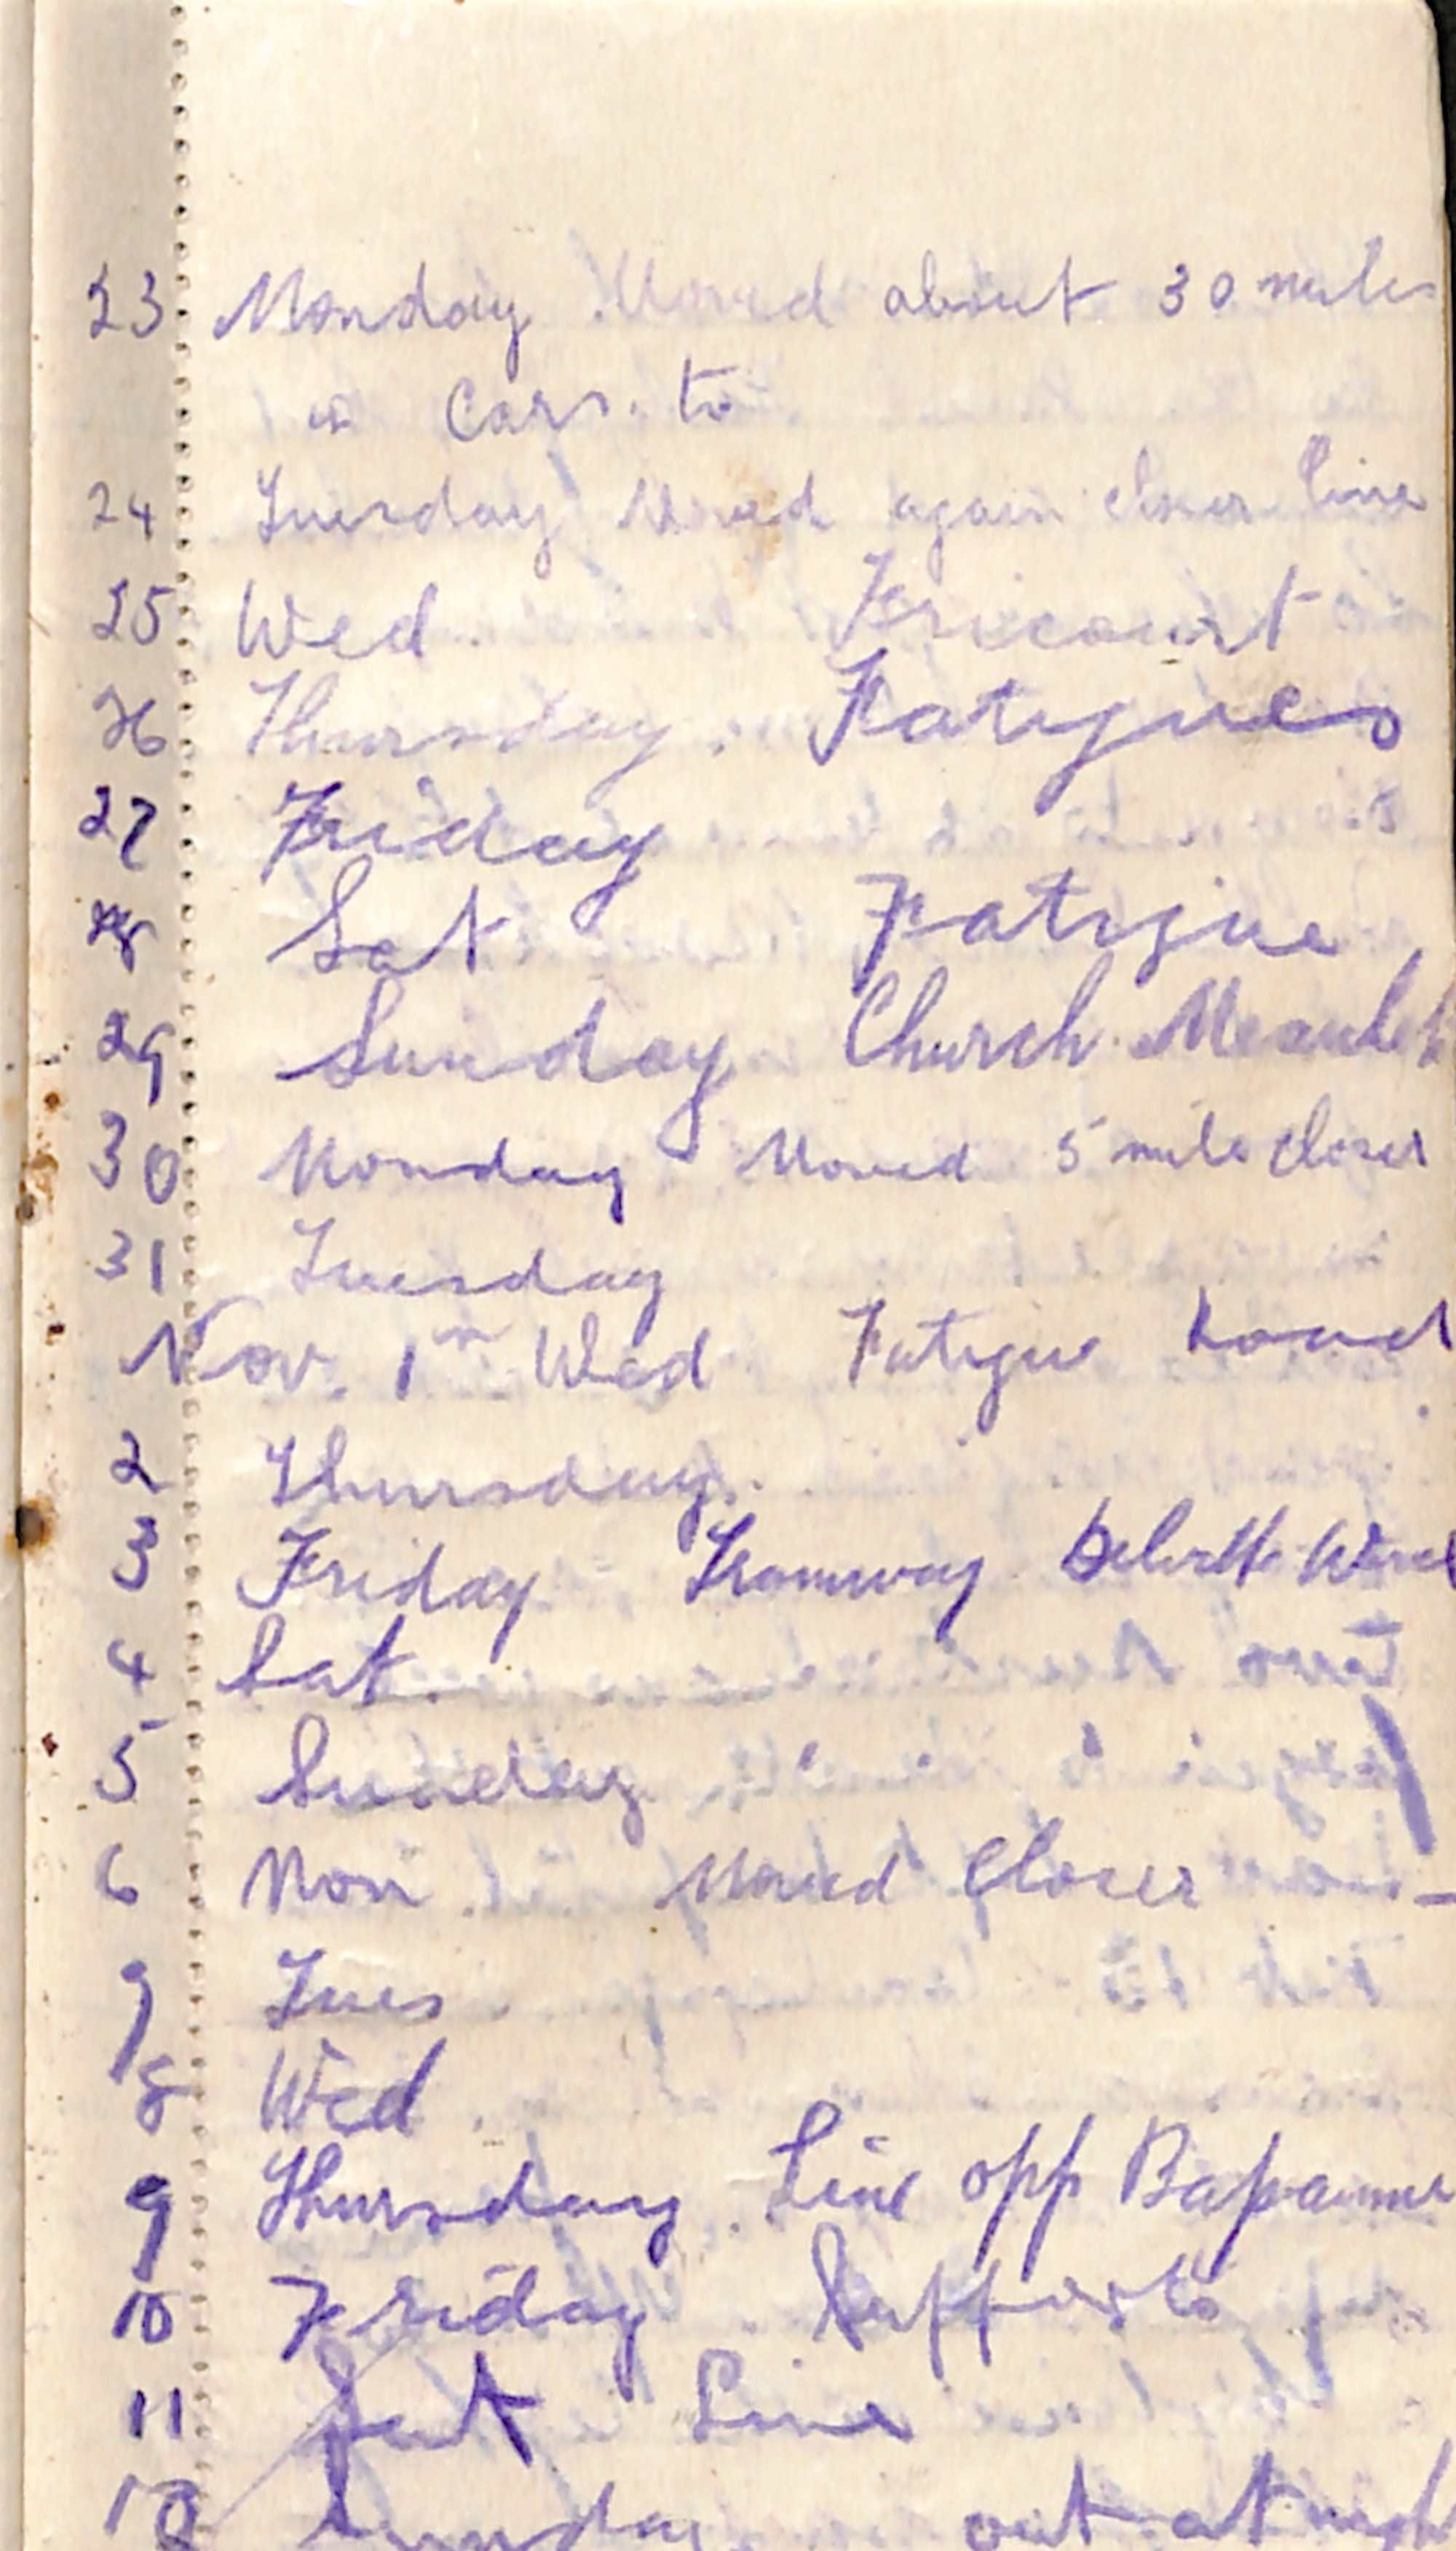 23 Monday Moved about 30 miles
in Cars. to
24 Tuesday Moved again closer line
25 Wed Fricourt
26 Thursday. Fatigues
27 Friday
28 Sat Fatigue
29 Sunday Church Meault
30 Monday Moved 5 mile closer
31 Tuesday
Nov. 1st Wed Fatigue Road
2 Thursday.
3 Friday Tramway Delville Wood
4 Sat
5 Sunday
6 Mon Moved Closer
7 Tues
8 Wed
9 Thursday. Line opp Bapaume
10 Friday Supports
11 Sat Line
12 Sunday out at nigh